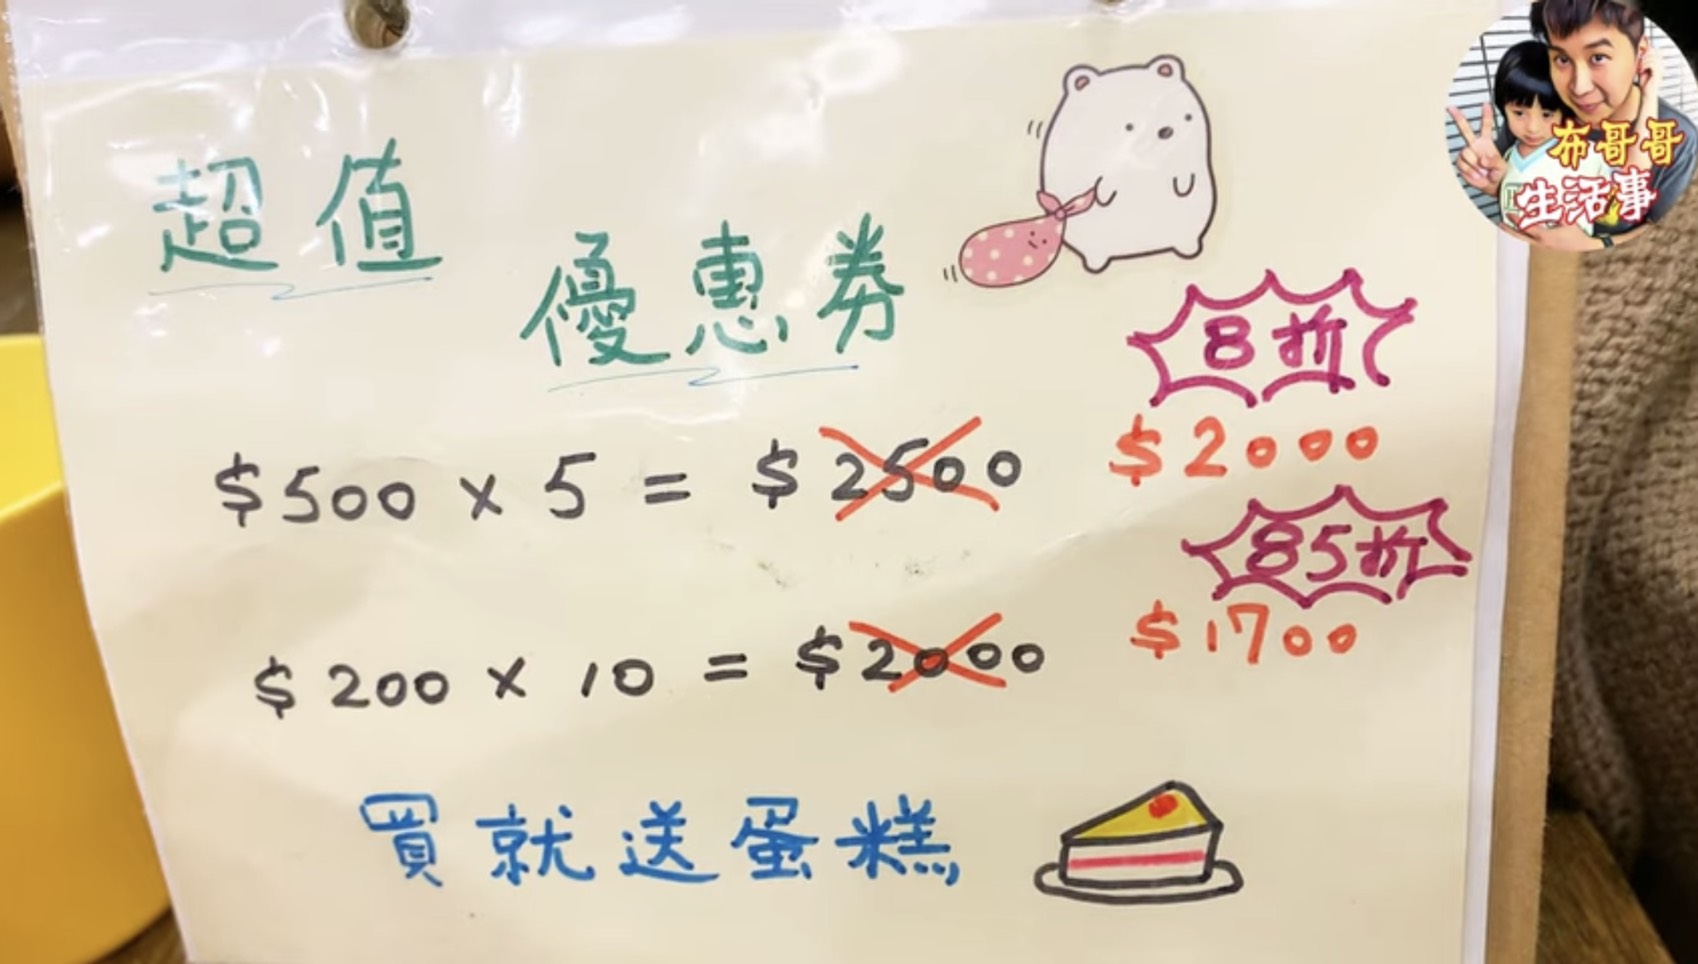 超值
優惠券
8折
$500 x 5 = $2500 $2000
85折
$200 x 10 = $2000 $1700
買就送蛋糕
布哥哥
生活事